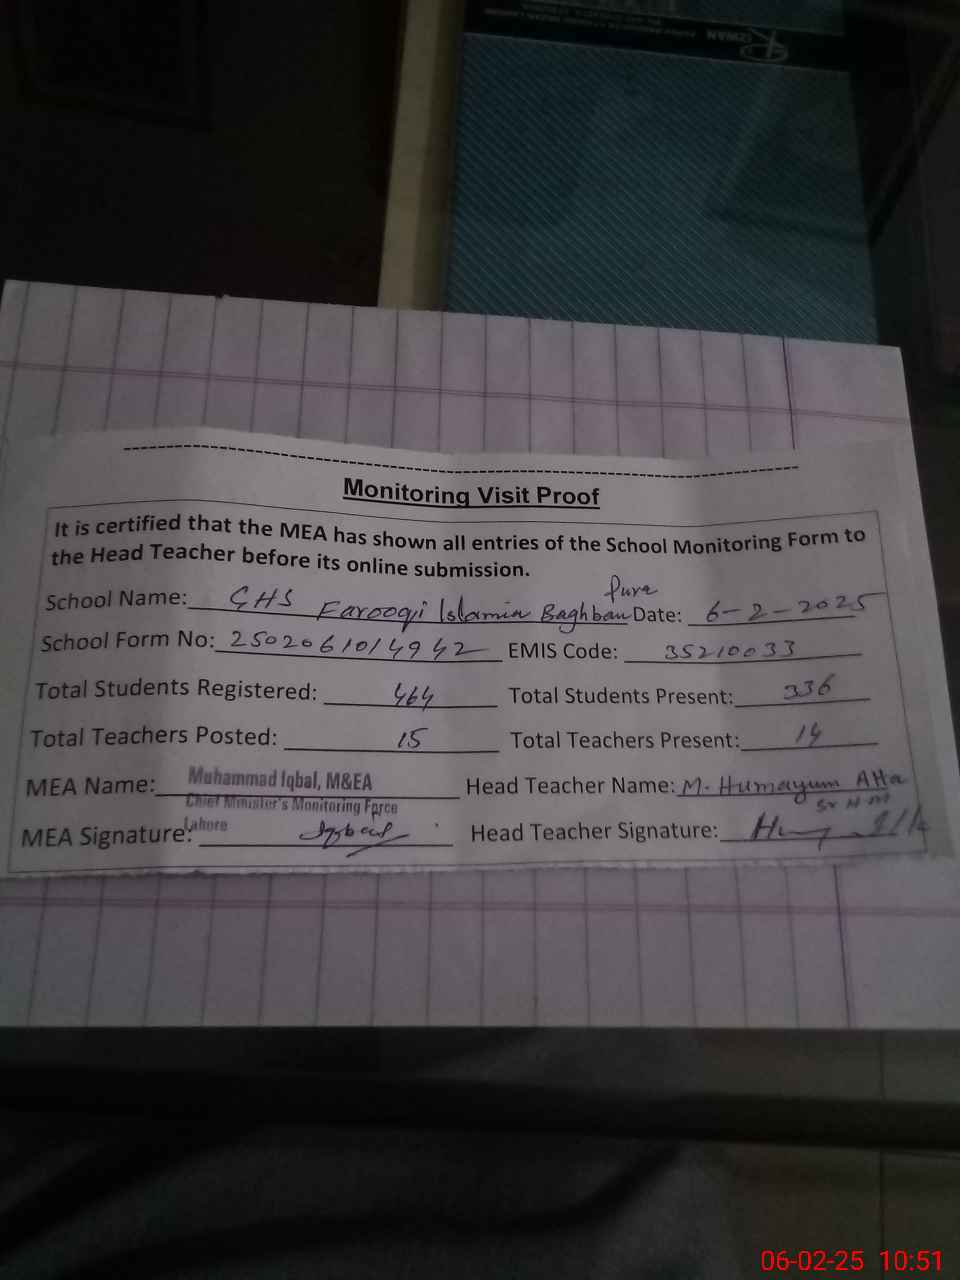 Monitoring Visit Proof
It is certified that the MEA has shown all entries of the School Monitoring Form to
the Head Teacher before its online submission.
School Name: GHS Farooqi Islamia Baghban Pura Date: 6-2-2025
School Form No: 2502061014942 EMIS Code: 35210033
Total Students Registered: 464 Total Students Present: 336
Total Teachers Posted: 15 Total Teachers Present: 14
MEA Name: Muhammad Iqbal, M&EA Head Teacher Name: M. Humayum Atta
Chief Minister's Monitoring Force
Lahore
MEA Signature: Iqbal Head Teacher Signature:
06-02-25 10:51